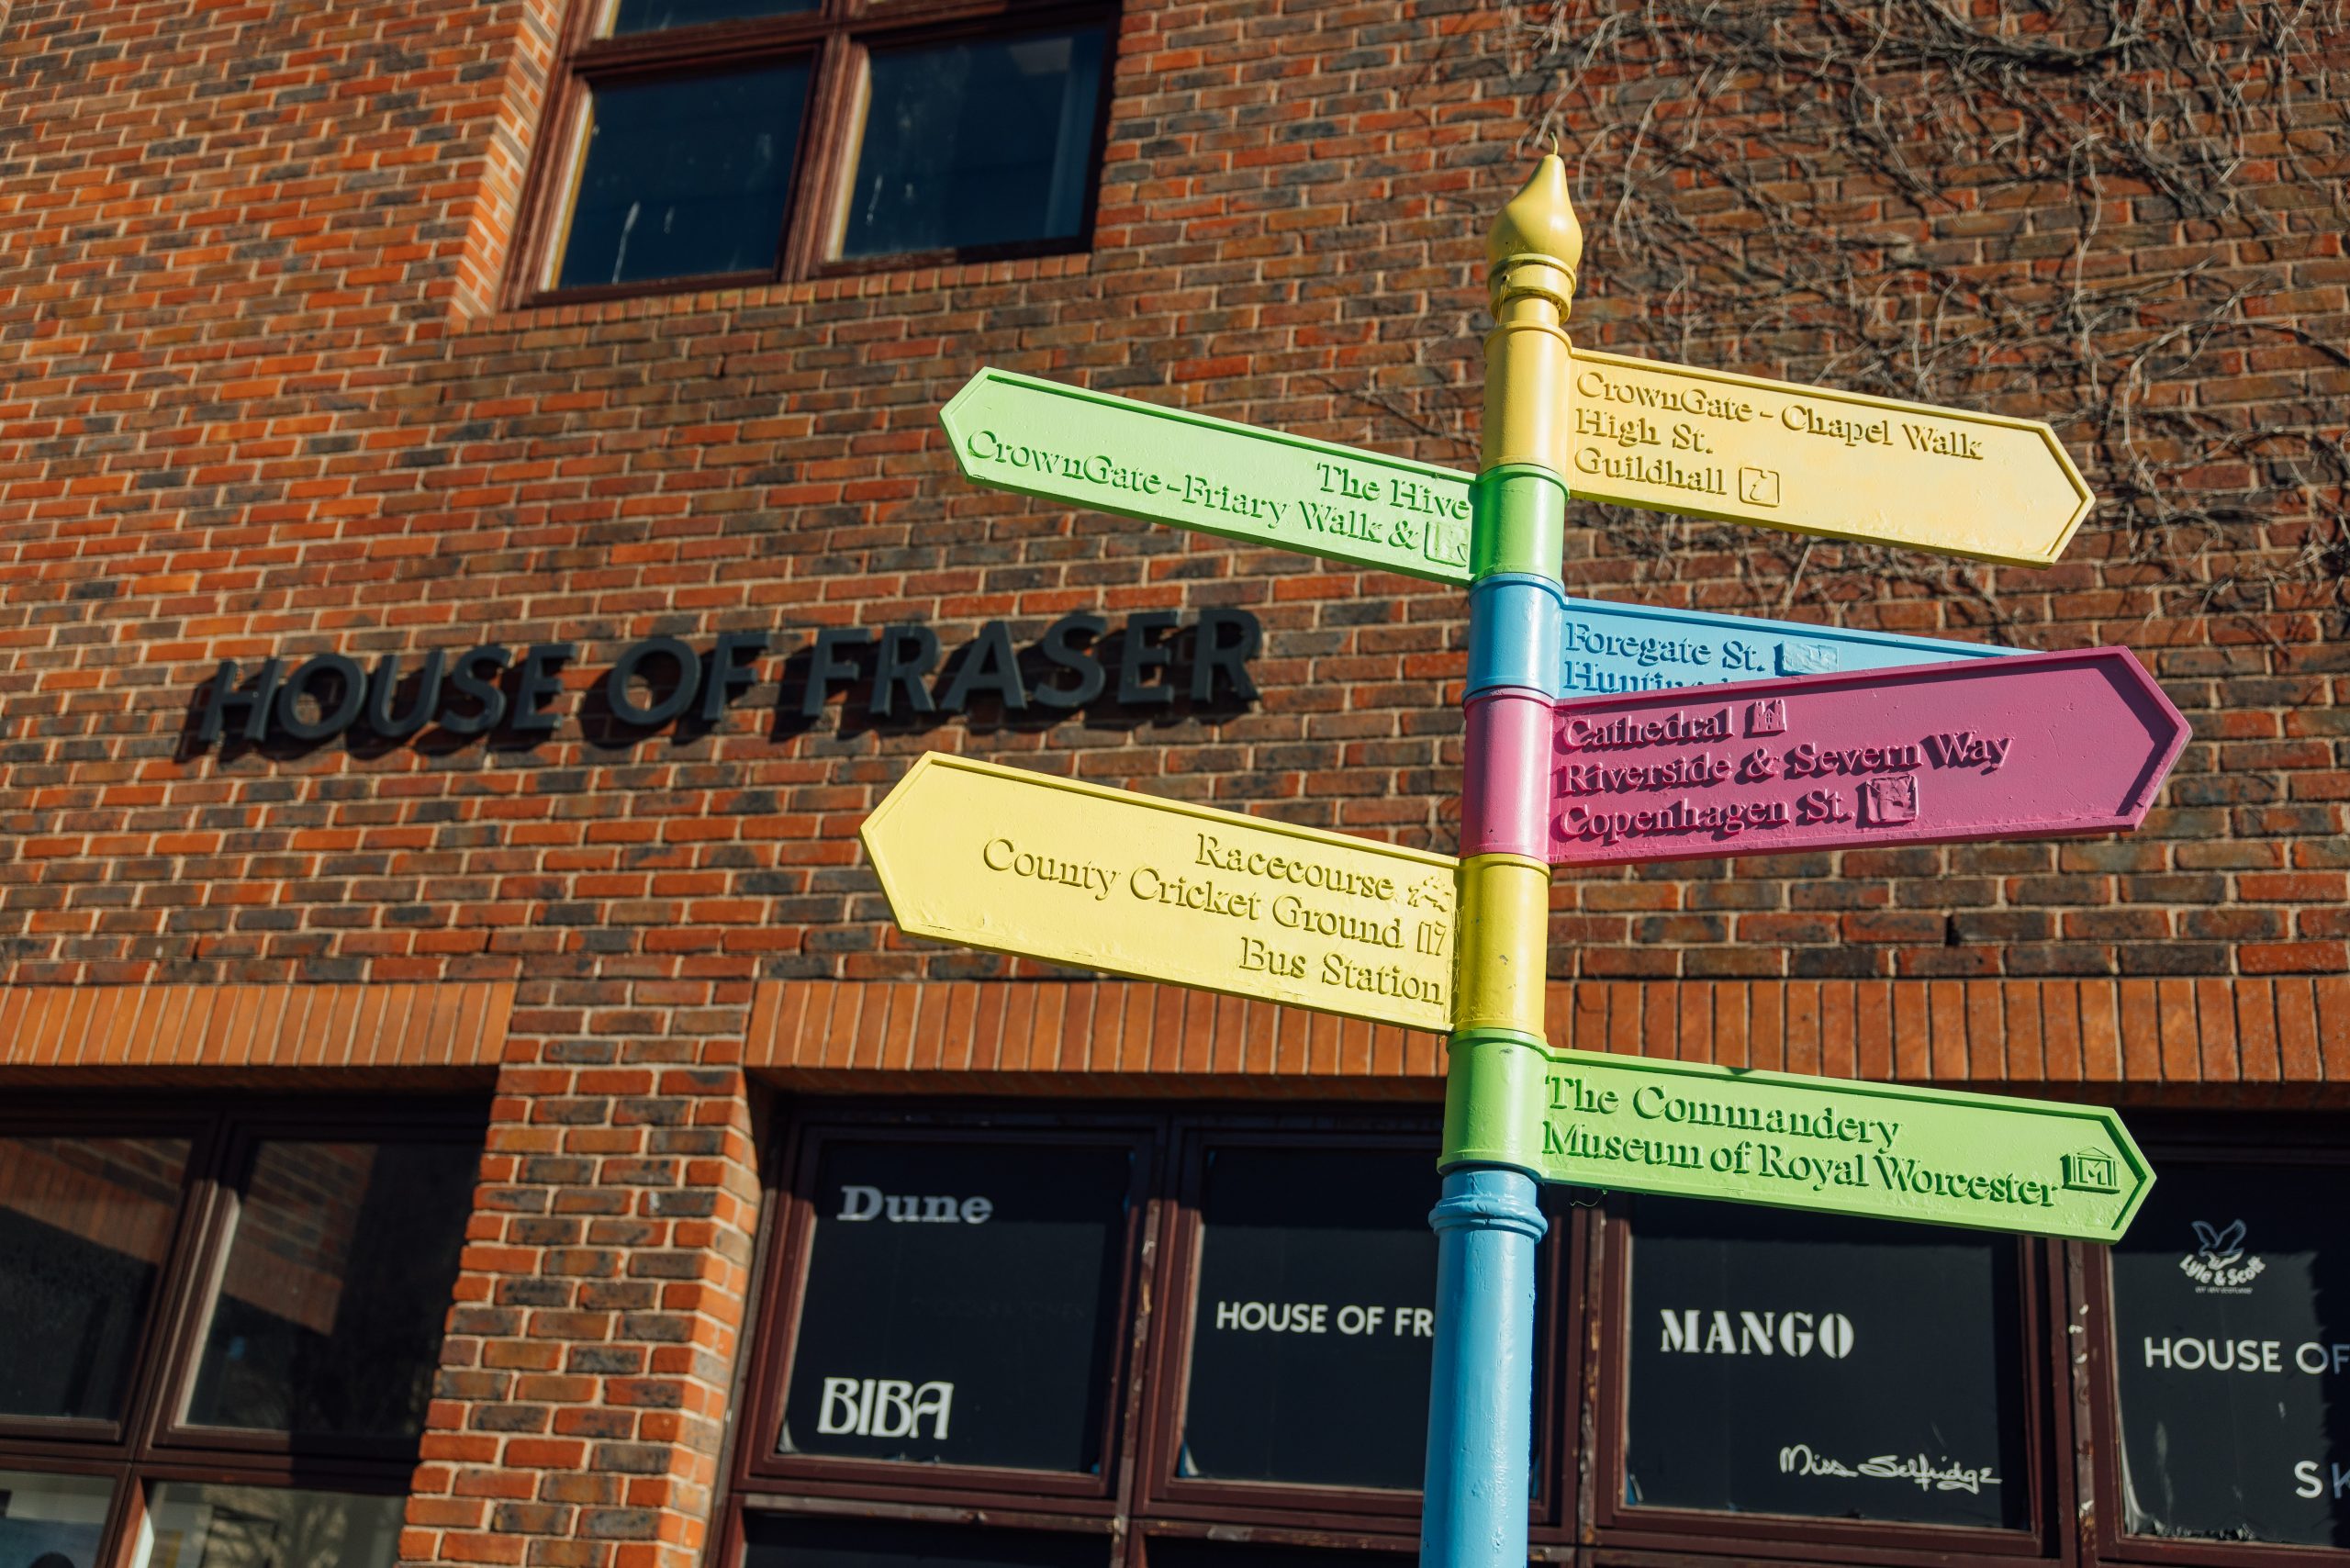 CrownGate - Chapel Walk
High St.
Guildhall i
The Hive
CrownGate-Friary Walk &
Foregate St.
HOUSE OF FRASER
Cathedral
Riverside & Severn Way
Copenhagen St.
Racecourse
County Cricket Ground
Bus Station
The Commandery
Museum of Royal Worcester M
Dune
BIBA
HOUSE OF FR
MANGO
Miss Selfridge
Lyle & Scott
HOUSE OF